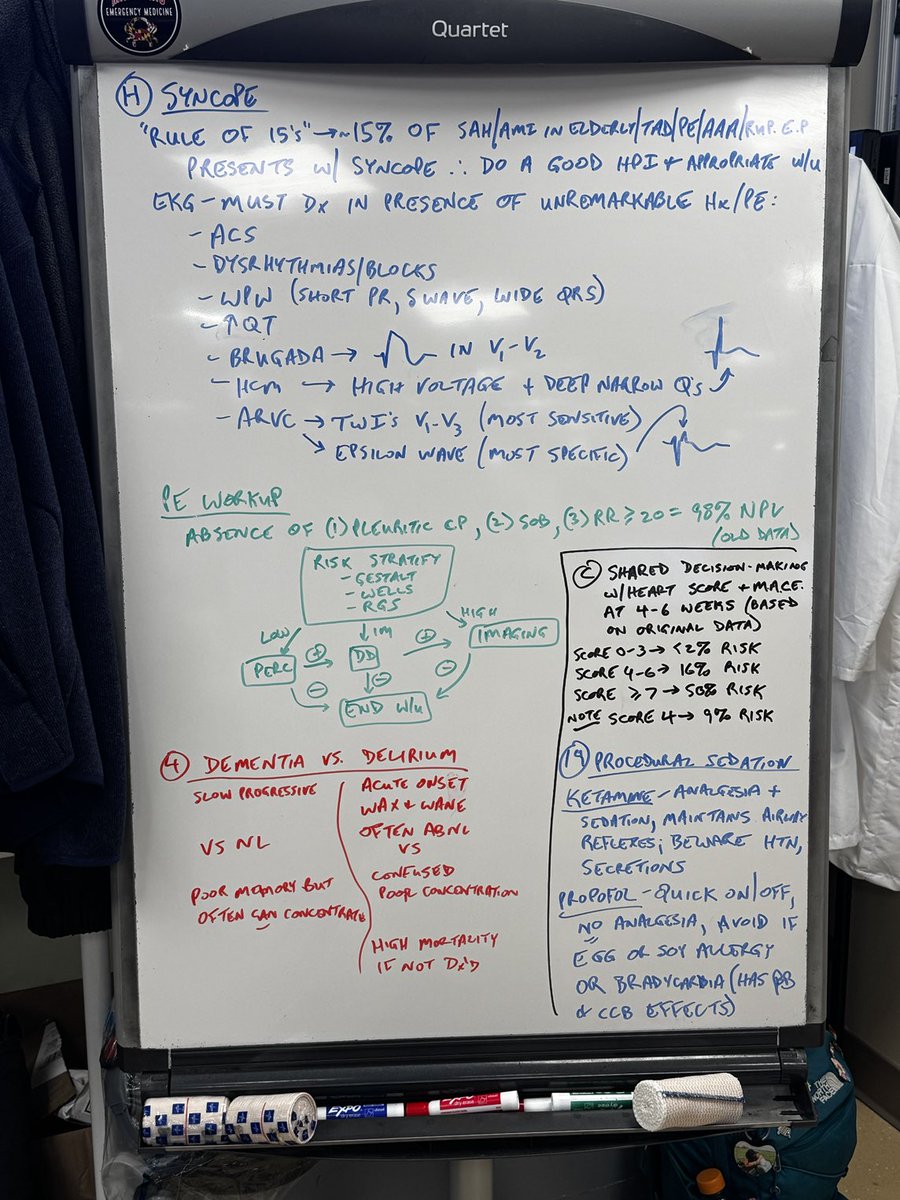 EMERGENCY MEDICINE
Quartet
H SYNCOPE
"RULE OF 15's" → ~15% OF SAH/AMI IN ELDERLY/TAD/PE/AAA/RUP. E.P
PRESENTS W/ SYNCOPE ∴ DO A GOOD HPI + APPROPRIATE W/U
EKG - MUST DX IN PRESENCE OF UNREMARKABLE HX/PE:
- ACS
- DYSRHYTHMIAS/BLOCKS
- WPW (SHORT PR, S WAVE, WIDE QRS)
- ↑QT
- BRUGADA → IN V1-V2
- HCM → HIGH VOLTAGE + DEEP NARROW Q's
- ARVC → TWI's V1-V3 (MOST SENSITIVE)
↘ EPSILON WAVE (MOST SPECIFIC)
PE WORKUP
ABSENCE OF (1) PLEURITIC CP, (2) SOB, (3) RR ≥ 20 = 98% NPV
(OLD DATA)
RISK STRATIFY
- GESTALT
- WELLS
- RGS
LOW
IM
HIGH
PERC
+
DD
+
IMAGING
-
-
-
END W/U
C SHARED DECISION-MAKING
W/HEART SCORE + MACE
AT 4-6 WEEKS (BASED
ON ORIGINAL DATA)
SCORE 0-3 → <2% RISK
SCORE 4-6 → 16% RISK
SCORE ≥7 → 50% RISK
NOTE SCORE 4 → 9% RISK
4 DEMENTIA VS. DELIRIUM
SLOW PROGRESSIVE
VS NL
POOR MEMORY BUT
OFTEN CAN CONCENTRATE
ACUTE ONSET
WAX + WANE
OFTEN ABNL
VS
CONFUSED
POOR CONCENTRATION
HIGH MORTALITY
IF NOT DX'D
19 PROCEDURAL SEDATION
KETAMINE - ANALGESIA +
SEDATION, MAINTAINS AIRWAY
REFLEXES; BEWARE HTN,
SECRETIONS
PROPOFOL - QUICK ON/OFF,
NO ANALGESIA, AVOID IF
EGG OR SOY ALLERGY
OR BRADYCARDIA (HAS βB
& CCB EFFECTS)
EXPO
EXPO